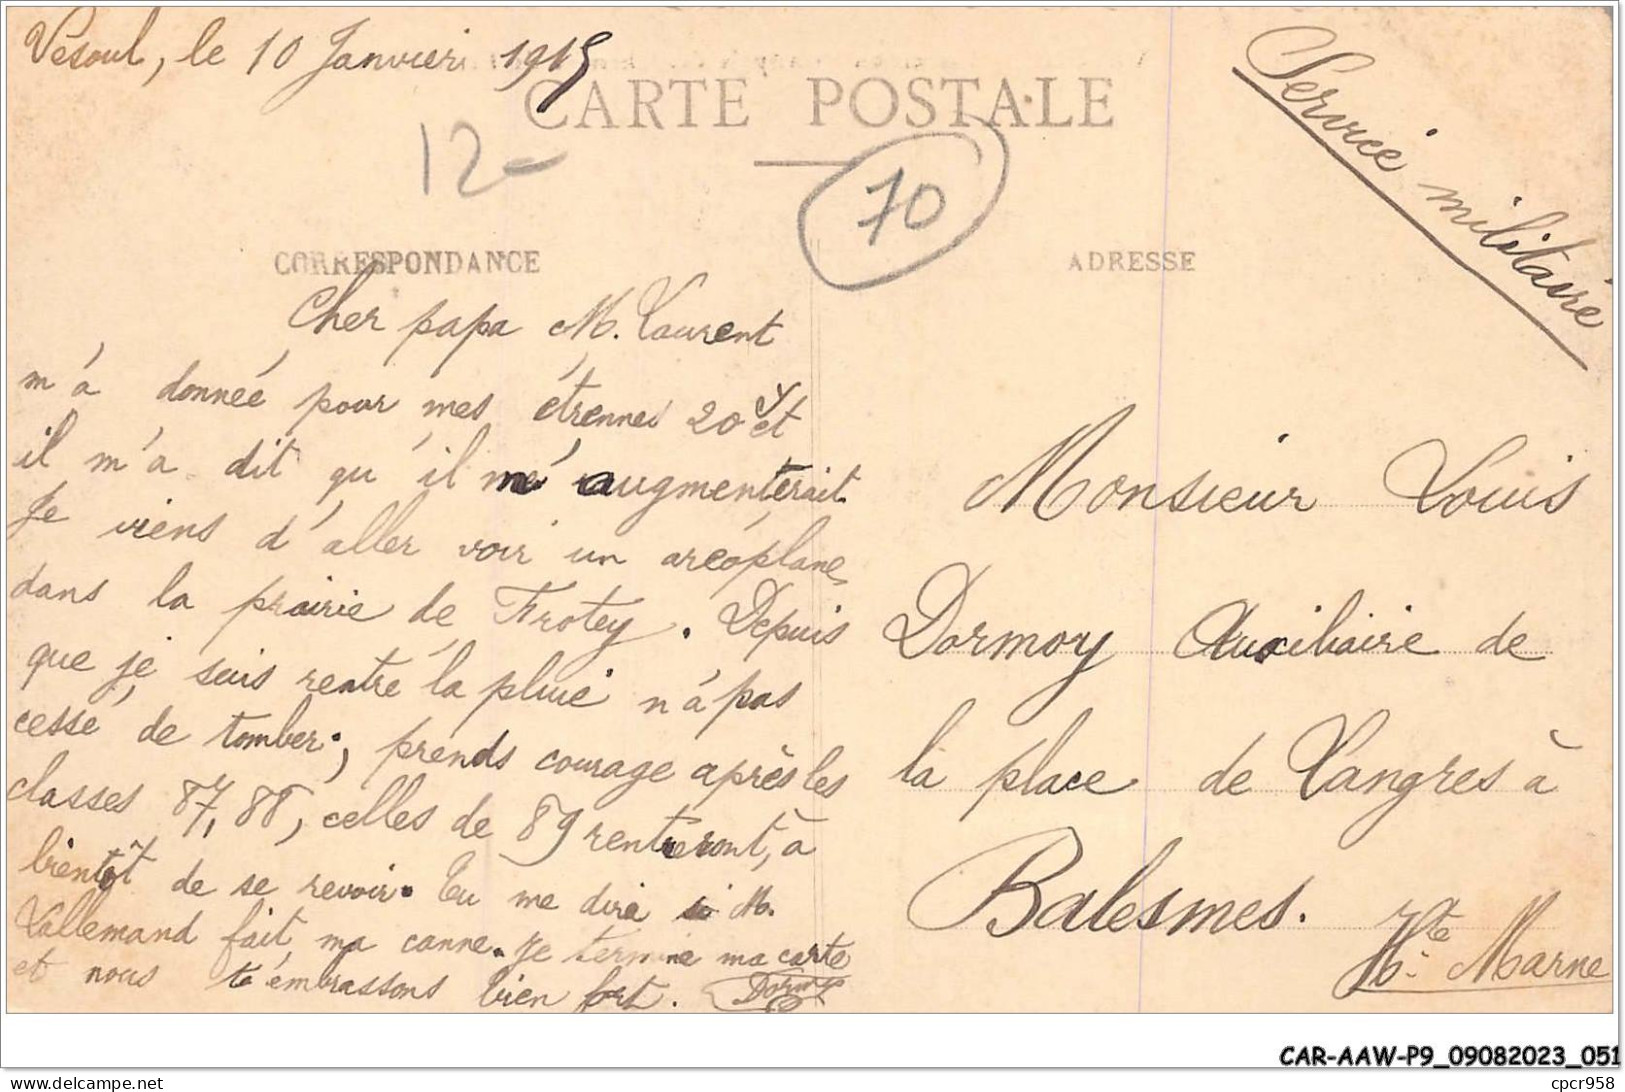 Vesoul, le 10 Janvier 1915
CARTE POSTALE
12-
70
Service militaire
CORRESPONDANCE
ADRESSE
Cher papa M. Laurent
m'a donneé pour mes étrennes 20 et
il m'a dit qu'il me augmenterait
Je viens d'aller voir un areóplane,
dans la prairie de Frotey. Depuis
que je suis rentré la pluie n'a pas
cessé de tomber; prends courage après les
classes 87, 88, celles de 89 rentreront, à
bientôt de se revoir. Tu me dira si M.
Lallemand fait ma canne. Je termine ma carte
et nous t'embrassons bien fort. Dormoy
Monsieur Louis
Dormoy Auxiliaire de
la place de Langres à
Balesmes.
Hte Marne
CAR-AAW-P9_09082023_051
delcampe.net
cpcr958